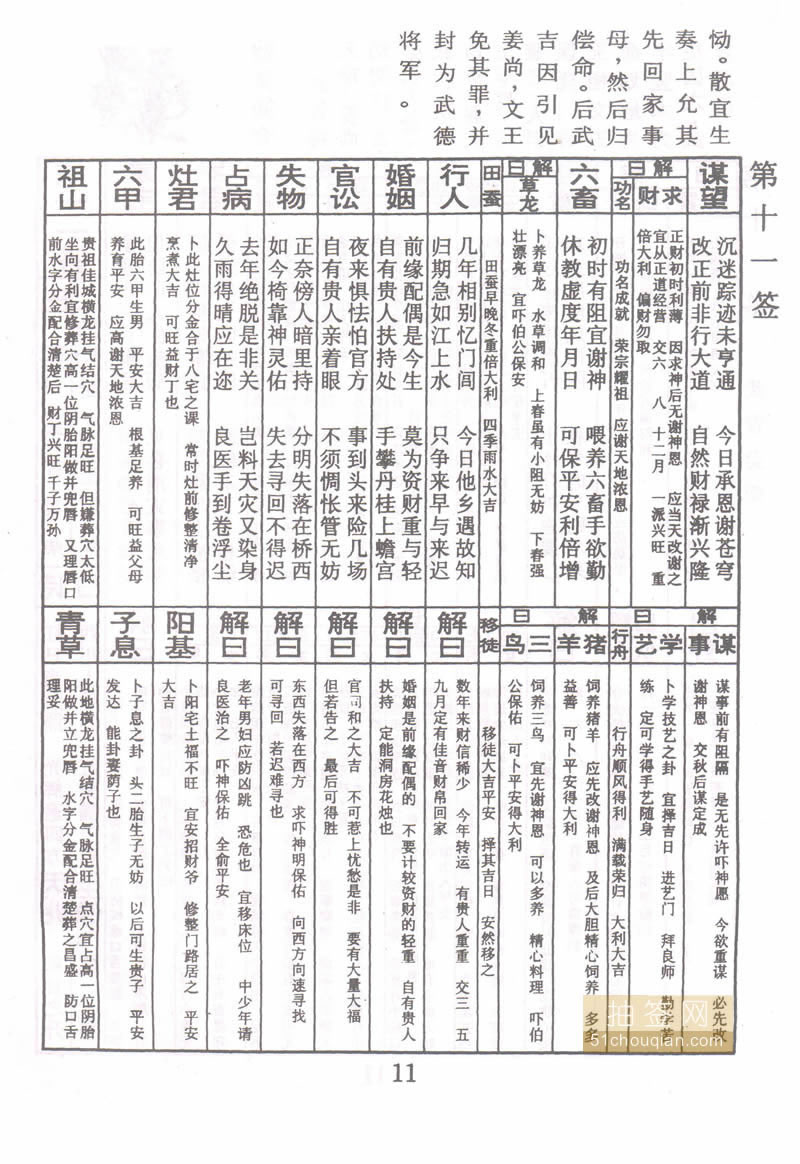 恸。散宜生
奏上允其
先回家事
母,然后归
偿命。后武
吉因引见
姜尚,文王
免其罪,并
封为武德
将军。
第十一签
谋望
沉迷踪迹未亨通 今日承恩谢苍穹
改正前非行大道 自然财禄渐兴隆
解曰
求财
正财初时利薄 因求神后无谢神恩 应当天改谢之
宜从正道经营 交六 八 十二月 一派兴旺 重
倍大利 偏财勿取
功名
功名成就 荣宗耀祖 应谢天地浓恩
六畜
初时有阻宜谢神 喂养六畜手欲勤
休教虚度年月日 可保平安利倍增
解曰
草龙
卜养草龙 水草调和 上春虽有小阻无妨 下春强
壮漂亮 宜吓伯公保安
田蚕
田蚕早晚冬重倍大利 四季雨水大吉
行人
几年相别忆门闾 今日他乡遇故知
归期急如江上水 只争来早与来迟
婚姻
前缘配偶是今生 莫为资财重与轻
自有贵人扶持处 手攀丹桂上蟾宫
官讼
夜来惧怯怕官方 事到头来险几场
自有贵人亲着眼 不须惆怅管无妨
失物
正奈傍人暗里持 分明失落在桥西
如今椅靠神灵佑 失去寻回不得迟
占病
去年绝脱是非关 岂料天灾又染身
久雨得晴应在迩 良医手到卷浮尘
灶君
卜此灶位分金合于八宅之课 常时灶前修整清净
烹煮大吉 可旺益财丁也
六甲
此胎六甲生男 平安大吉 根基足养 可旺益父母
养育平安 应高谢天地浓恩
祖山
贵祖佳城横龙挂气结穴 气脉足旺 但嫌葬穴太低
坐向有利宜修葬穴高一位阴胎阳做并兜唇 又理唇口
前水字分金配合清楚后 财丁兴旺 千子万孙
解曰
谋事
谋事前有阻隔 是无先许吓神愿 今欲重谋 必先改
谢神恩 交秋后谋定成
学艺
卜学技艺之卦 宜择吉日 进艺门 拜良师 勤学苦
练 定可学得手艺随身
行舟
行舟顺风得利 满载荣归 大利大吉
解曰
猪羊
饲养猪羊 应先改谢神恩 及后大胆精心饲养 多多
益善 可卜平安得大利
三鸟
饲养三鸟 宜先谢神恩 可以多养 精心料理 吓伯
公保佑 可卜平安得大利
移徒
移徒大吉平安 择其吉日 安然移之
解曰
数年来财信稀少 今年转运 有贵人重重 交三 五
九月定有佳音财帛回家
解曰
婚姻是前缘配偶的 不要计较资财的轻重 自有贵人
扶持 定能洞房花烛也
解曰
官司和之大吉 不可惹上忧愁是非 要有大量大福
但若告之 最后可得胜
解曰
东西失落在西方 求吓神明保佑 向西方向速寻找
可寻回 若迟难寻也
解曰
老年男妇应防凶跳 恐危也 宜移床位 中少年请
良医治之 吓神保佑 全俞平安
阳基
卜阳宅土福不旺 宜安招财爷 修整门路居之 平安
大吉
子息
卜子息之卦 头二胎生子无妨 以后可生贵子 平安
发达 能卦妻荫子也
青草
此地横龙挂气结穴 气脉足旺 点穴宜占高一位阴胎
阳做并立兜唇 水字分金配合清楚葬之昌盛 防口舌
理妥
抽签网
51chouqian.com
11